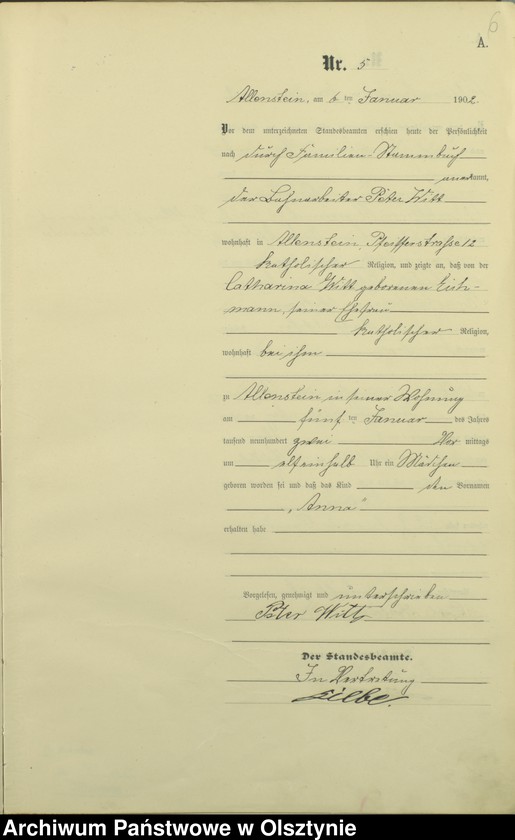 6
A.
Nr. 5
Allenstein, am 6 ten Januar 1902.
Vor dem unterzeichneten Standesbeamten erschien heute der Persönlichkeit
nach durch Familien-Stammbuch
anerkannt,
der Bahnarbeiter Peter Witt
wohnhaft in Allenstein, Pfeifferstraße 12
katholischer Religion, und zeigte an, daß von der
Catharina Witt geborenen Eich-
mann, seiner Ehefrau
katholischer Religion,
wohnhaft bei ihm
zu Allenstein in seiner Wohnung
am fünf ten Januar des Jahres
tausend neunhundert zwei Vor mittags
um elfeinhalb Uhr ein Mädchen
geboren worden sei und daß das Kind den Vornamen
„Anna“
erhalten habe
Vorgelesen, genehmigt und unterschrieben
Peter Witt
Der Standesbeamte.
In Vertretung
Archiwum Państwowe w Olsztynie